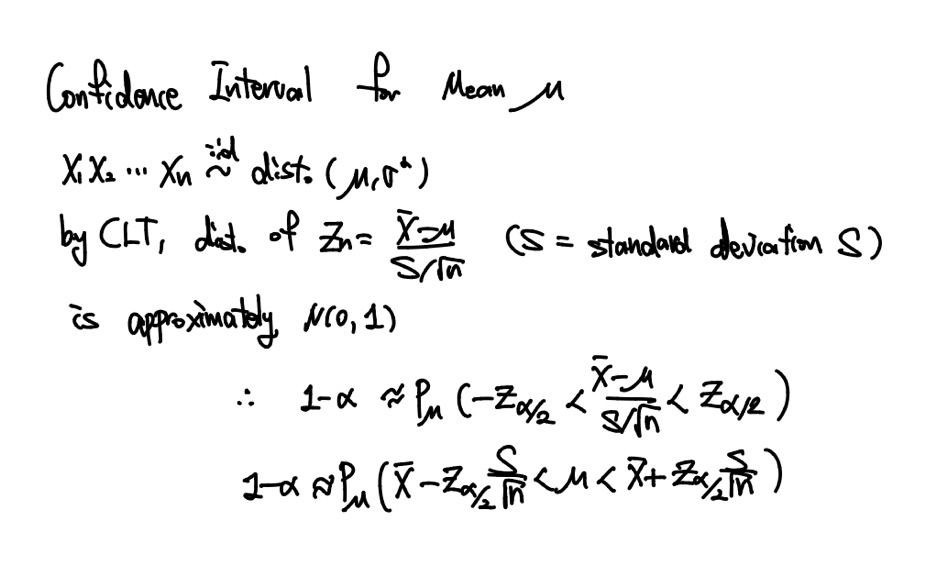 Confidence Interval for Mean μ
X₁ X₂ ... Xn iid ~ dist. (μ, σ²)
by CLT, dist. of Zn = (X̄-μ)/(S/√n) (S = standard deviation S)
is approximately N(0, 1)
∴ 1-α ≈ Pμ (-Zα/2 < (X̄-μ)/(S/√n) < Zα/2)
1-α ≈ Pμ (X̄ - Zα/2 S/√n < μ < X̄ + Zα/2 S/√n)